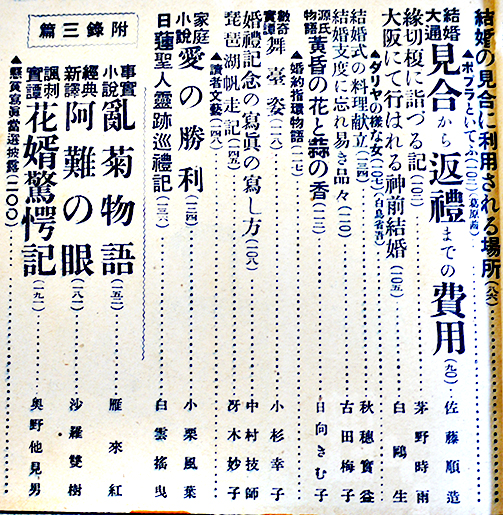 結婚の見合に利用される場所(八六)
▲ポプラといてふ(一〇二)(葛原𦱳)
結婚大通 見合から返禮までの費用(九〇) 佐藤順造
緣切榎に詣づる記(一〇三) 茅野時雨
大阪にて行はれる神前結婚(一〇五) 白鷗生
▲ダリヤの樣な女(一〇七)(白鳥省吾)
結婚式の料理献立(一三四) 秋穗寳益
結婚支度に忘れ易き品々(一一〇) 古田梅子
源氏物語 黃昏の花と蒜の香(一一三) 日向きむ子
▲婚約指環物語(一一七)
數奇實譚 舞臺姿(一二八) 小杉幸子
婚禮記念の寫眞の寫し方(一〇八) 中村技師
琵琶湖帆走記(一四八) 冴木妙子
▲讀者文藝(一四八)
家庭小說 愛の勝利(二四) 小栗風葉
日蓮聖人靈跡巡禮記(一三六) 白雲搖曳
附錄三篇
事實小說 亂菊物語(一五二) 雁來紅
經典新譯 阿難の眼(一八一) 沙羅雙樹
諷刺實譚 花婿驚愕記(一九一) 奧野他見男
▲懸賞寫眞當選披露(二〇〇)